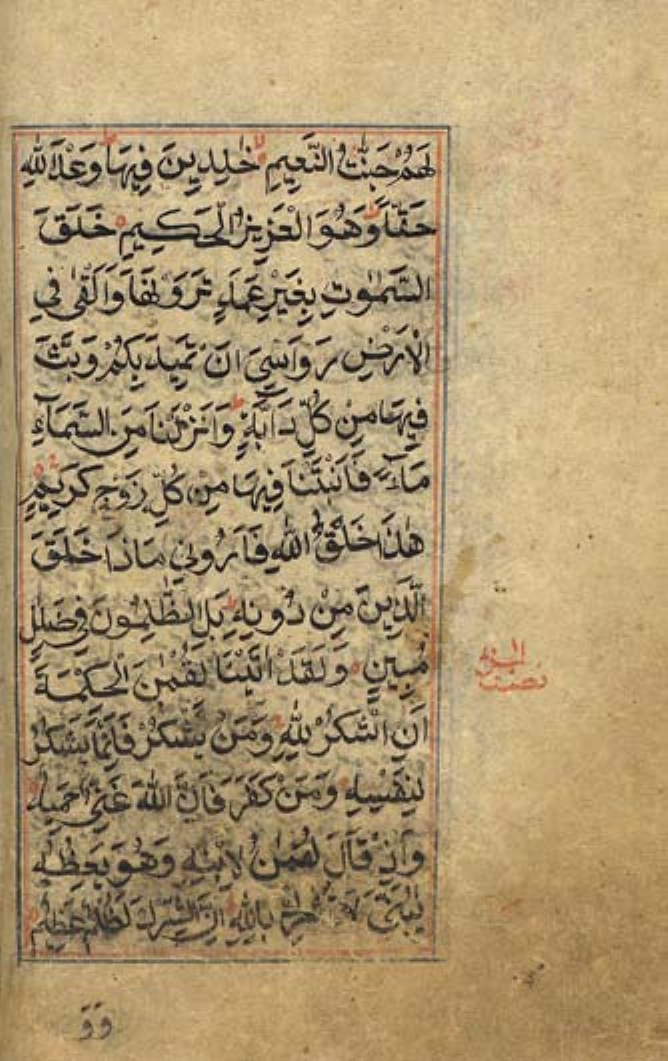 لَهُمْ جَنّٰتُ النَّعِيمِ خٰلِدِينَ فِيهَا وَعْدَ اللّٰهِ
حَقًّا وَهُوَ الْعَزِيزُ الْحَكِيمِ خَلَقَ
السَّمٰوٰتِ بِغَيْرِ عَمَدٍ تَرَوْنَهَا وَاَلْقٰى فِي
الْاَرْضِ رَوَاسِيَ اَنْ تَمِيدَ بِكُمْ وَبَثَّ
فِيهَا مِنْ كُلِّ دَآبَّةٍ وَاَنْزَلْنَا مِنَ السَّمَآءِ
مَآءً فَاَنْبَتْنَا فِيهَا مِنْ كُلِّ زَوْجٍ كَرِيمٍ
هٰذَا خَلْقُ اللّٰهِ فَاَرُونِي مَاذَا خَلَقَ
الَّذِينَ مِنْ دُونِهِ بَلِ الظّٰلِمُونَ فِي ضَلٰلٍ
مُبِينٍ وَلَقَدْ اٰتَيْنَا لُقْمٰنَ الْحِكْمَةَ
اَنِ اشْكُرْ لِلّٰهِ وَمَنْ يَشْكُرْ فَاِنَّمَا يَشْكُرُ
لِنَفْسِهِ وَمَنْ كَفَرَ فَاِنَّ اللّٰهَ غَنِيٌّ حَمِيدٌ
وَاِذْ قَالَ لُقْمٰنُ لِابْنِهِ وَهُوَ يَعِظُهُ
يٰبُنَيَّ لَا بِاللّٰهِ اِنَّ الشِّرْكَ لَظُلْمٌ عَظِيمٌ